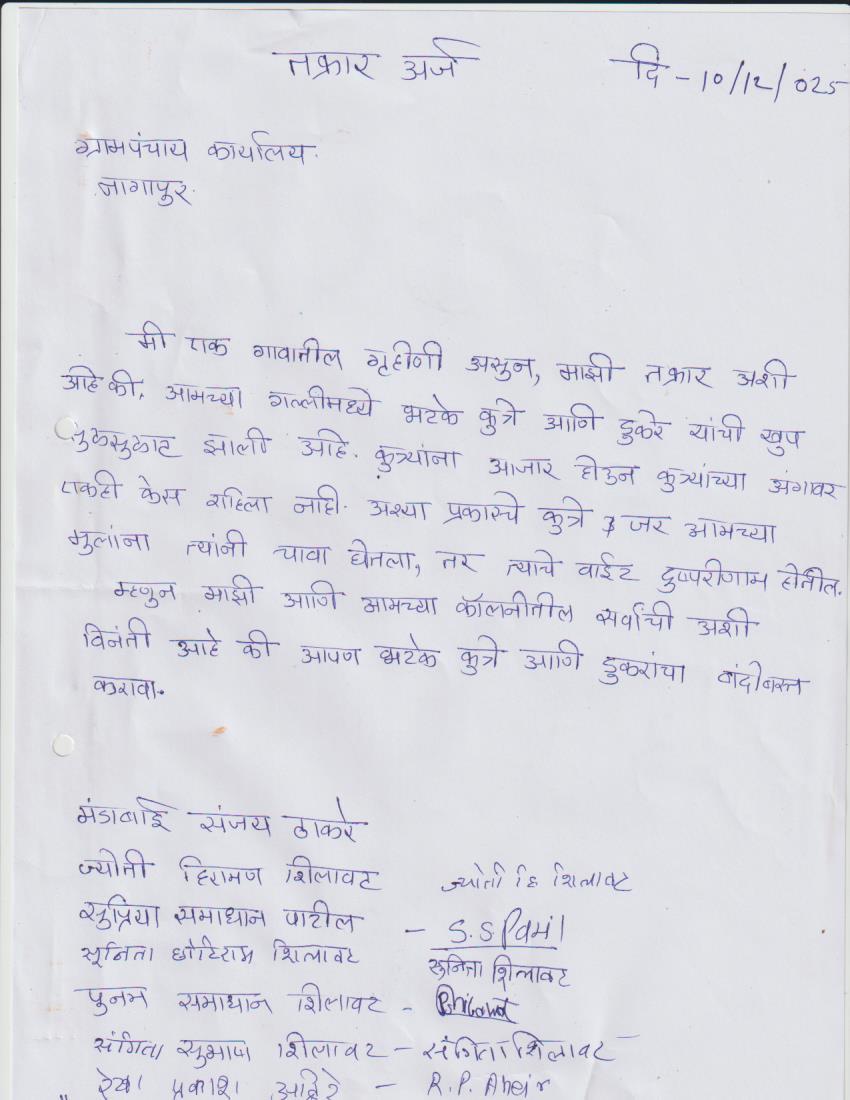 तक्रार अर्ज दि - 10/12/025
ग्रामपंचाय कार्यालय.
नागापुर.
मी एक गावातील गृहीणी असुन, माझी तक्रार अशी
आहे की, आमच्या गल्लीमध्ये भटके कुत्रे आणि डुकरे यांची खुप
सुळसुळाट झाली आहे. कुत्र्यांना आजार होऊन कुत्र्यांच्या अंगावर
एकही केस राहिला नाही. अश्या प्रकारचे कुत्रे जर आमच्या
मुलांना त्यांनी चावा घेतला, तर त्याचे वाईट दुष्परीणाम होतील.
म्हणुन माझी आणि आमच्या कॉलनीतील सर्वांची अशी
विनंती आहे की आपण भटके कुत्रे आणि डुकरांचा बंदोबस्त
करावा.
मंडाबाई संजय ठाकरे
ज्योती हिरामण शिलावट ज्योती हि शिलावट
सुप्रिया समाधान पाटील - S.S.Patil
सूनिता छोटिराम शिलावट सुनिता शिलावट
पुनम समाधान शिलावट -
संगिता सुभाष शिलावट - संगिता शिलावट
रेखा प्रकाश अहिरे - R.P. Aheir